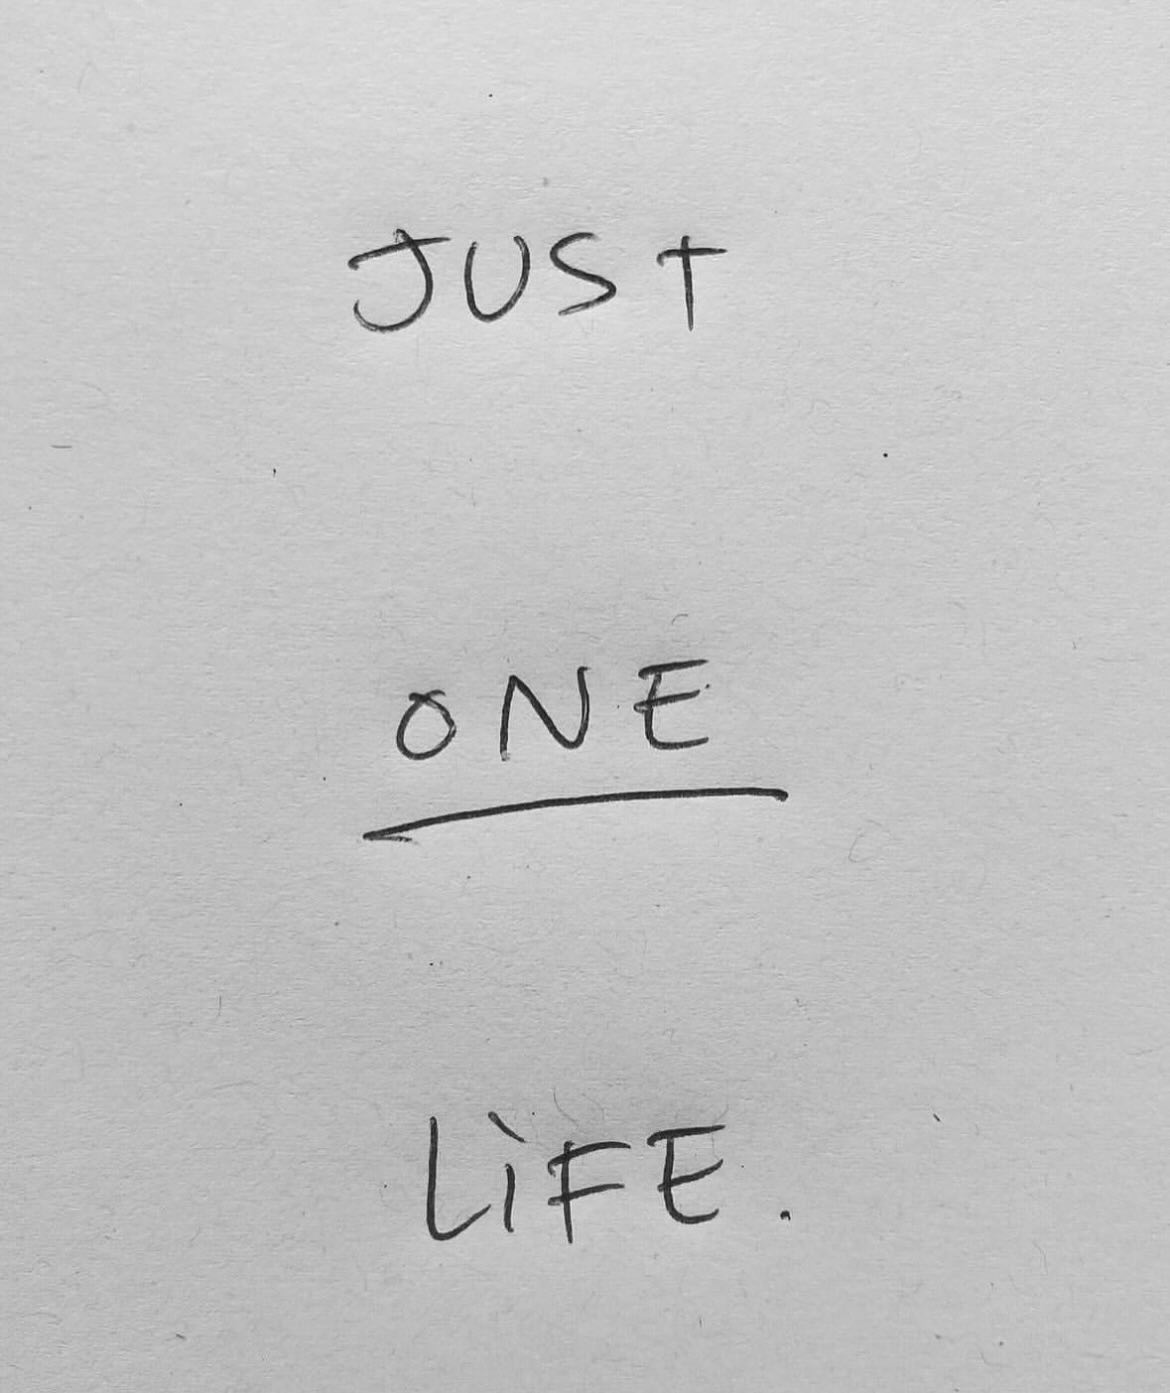 JUST
ONE
LiFE.